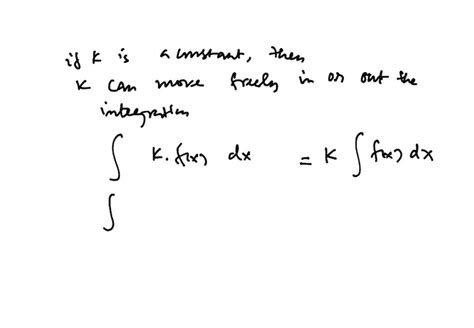 if K is a constant, then
K can move freely in or out the
integration
∫ K. f(x) dx = K ∫ f(x) dx
∫